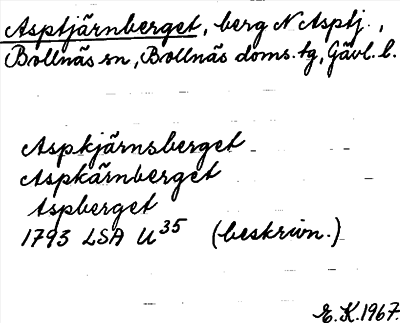 Asptjärnberget, berg N Asptj.,
Bollnäs sn, Bollnäs doms. tg, Gävl. l.
Aspkjärnsberget
Aspkärnberget
Aspberget
1793 LSA U 35 (beskrivn.)
E. K. 1967.